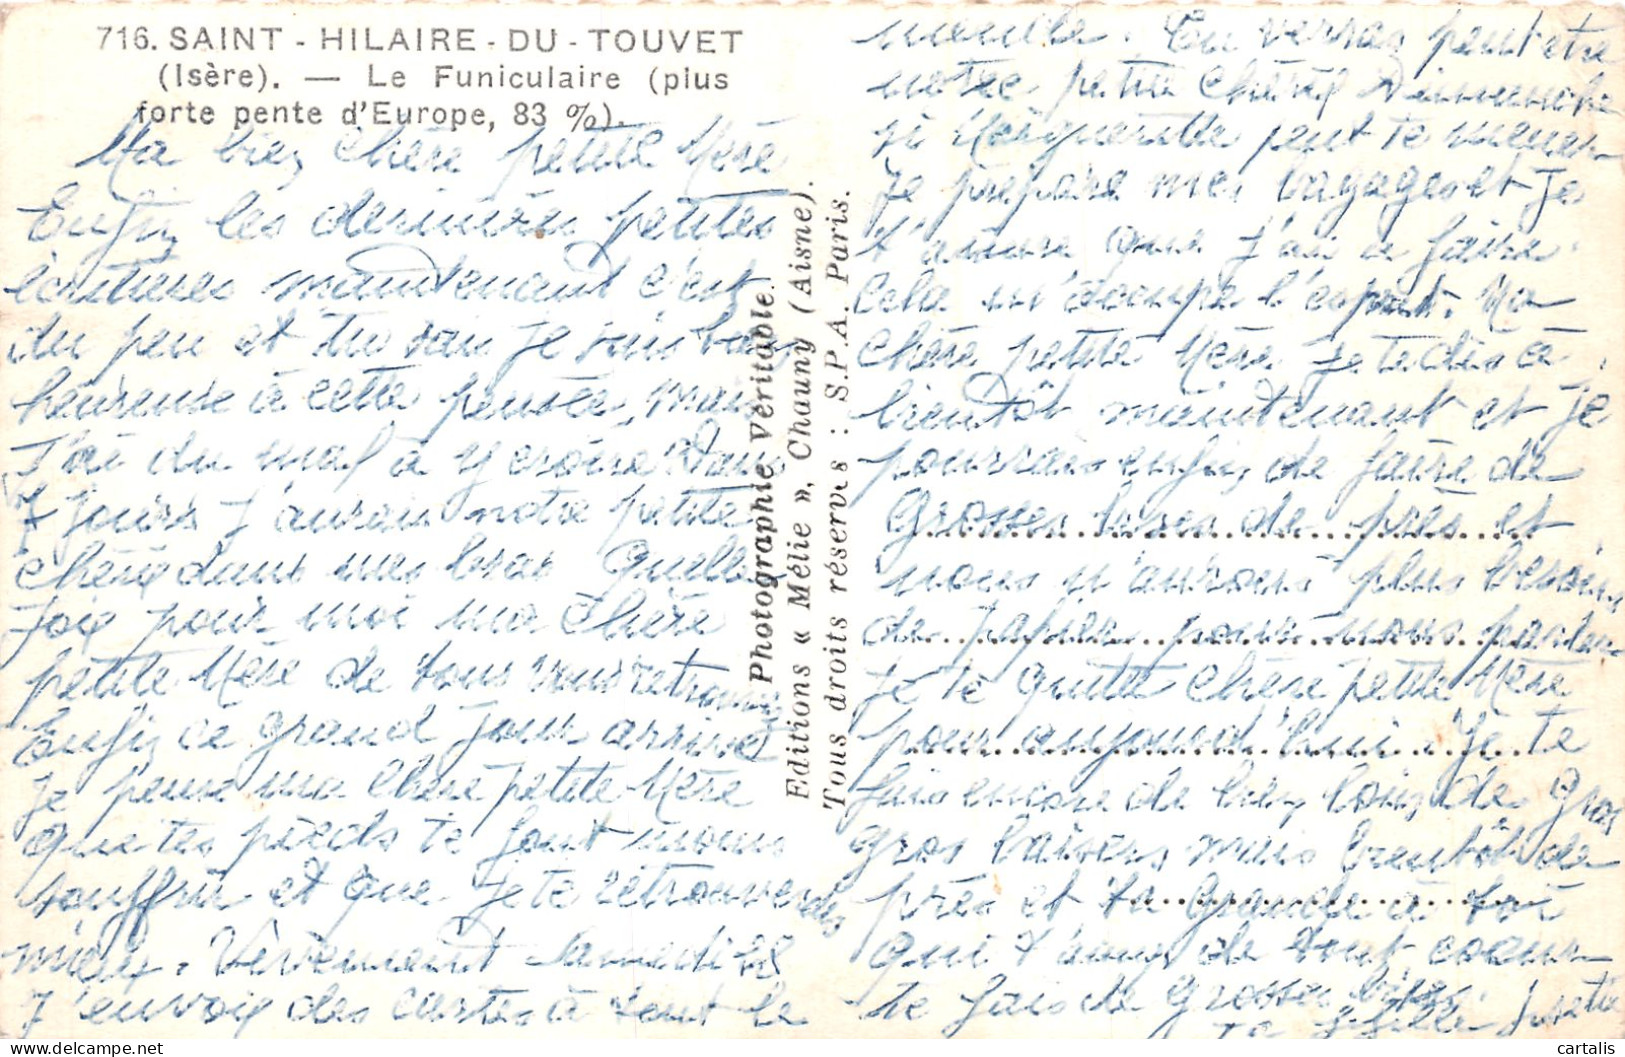 716. SAINT - HILAIRE - DU - TOUVET
(Isère). — Le Funiculaire (plus
forte pente d'Europe, 83 %).
Ma bien Chère petite Mère
Enfin les dernières petites
écritures maintenant c'est
du peu et tu sais je suis bien
heureuse à cette pensée, mais
J'ai du mal à y croire Dans
7 Jours J'aurais notre petite
Chérie dans mes bras Quelle
Joie pour moi ma Chère
petite Mère de tous vous retrouver
Enfin ce grand Jour arrive
Je pense ma Chère petite Mère
Que tes pieds te font moins
souffrir et que Je te retrouverais
mieux. Vivement Samedi
J'envoie des cartes à tout le
monde. Tu verras peut etre
notre petite Chérie Dimanche
si Marguerite peut te mener
Je prépare mes bagages et Je
t'assure que J'ai a faire
Cela m'occupe l'esprit. Ma
Chère petite Mère Je te dis à
bientôt maintenant et Je
pourrais enfin te faire de
Grosses bises de près et
nous n'aurons plus besoin
de papier pour nous parler
Je te quitte Chère petite Mère
pour aujourd'hui. Je te
fais encore de bien loin de gros
gros baisers mais bientôt de
près et ta Grande à toi
Qui t'aime de tout coeur
te fais de Grosses bises
Ta fille Josette
Photographie véritable.
Editions « Mélie », Chauny (Aisne).
Tous droits réservés : S.P.A. Paris.
cartalis